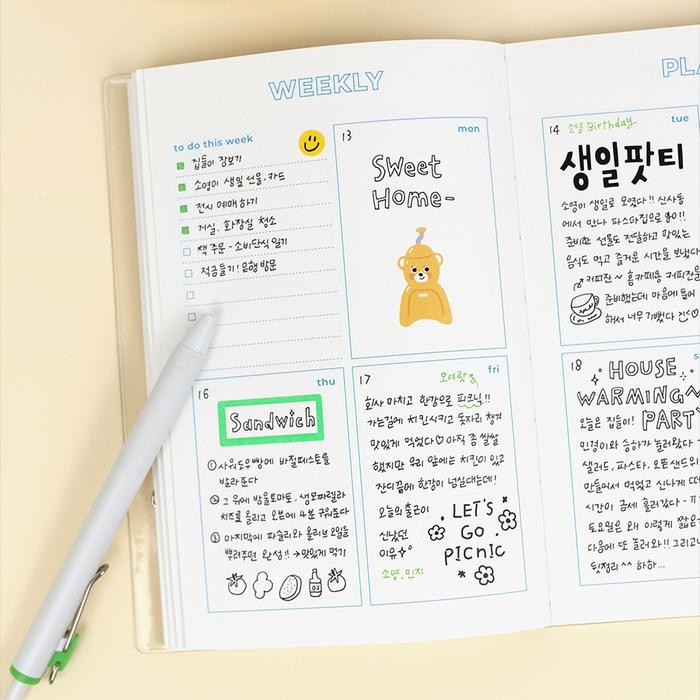 WEEKLY
to do this week
집들이 장보기
소영이 생일 선물, 카드
전시 예매 하기
거실, 화장실 청소
책 주문 - 소비단식 일기
적금들기! 은행 방문
13
mon
Sweet
Home-
14
소영 Birthday
tue
생일팟티
소영이 생일로 모였다!! 신사동
에서 만나 파스타집으로 고!!
준비한 선물도 전달하고 맛있는
음식도 먹고 즐거운 시간을 보냈다
커피잔 ~ 홈카페용 커피잔을
준비했는데 마음에 들어
해서 너무 기뻤다
16
thu
Sandwich
① 사워도우빵에 바질페스토를
발라준다
② 그 위에 방울토마토, 생모짜렐라
치즈를 올리고 오븐에 4분 구워준다
③ 마지막에 파슬리와 올리브 오일을
뿌려주면 완성!! → 맛있게 먹기
17
fri
회사 마치고 한강으로 피크닉!!
가는길에 치킨시키고 돗자리 챙겨
맛있게 먹었다♡ 아직 좀 쌀쌀
했지만 우리 앞에는 치킨이 있고
잔디끝에 한강이 넘실대는데!
오늘의 출근이
신났던
이유
소영, 민지
LET's
Go
PICNIC
18
HOUSE
WARMING~
PARTY
오늘은 집들이!
민경이와 승하가 놀러왔다
샐러드, 파스타, 오픈샌드위
만들어서 먹었고 신나게
시간이 금세 흘러갔다
토요일은 왜 이렇게 짧은
다음에 또 놀러와!! 그리고
뒷정리 ^^ 하하...